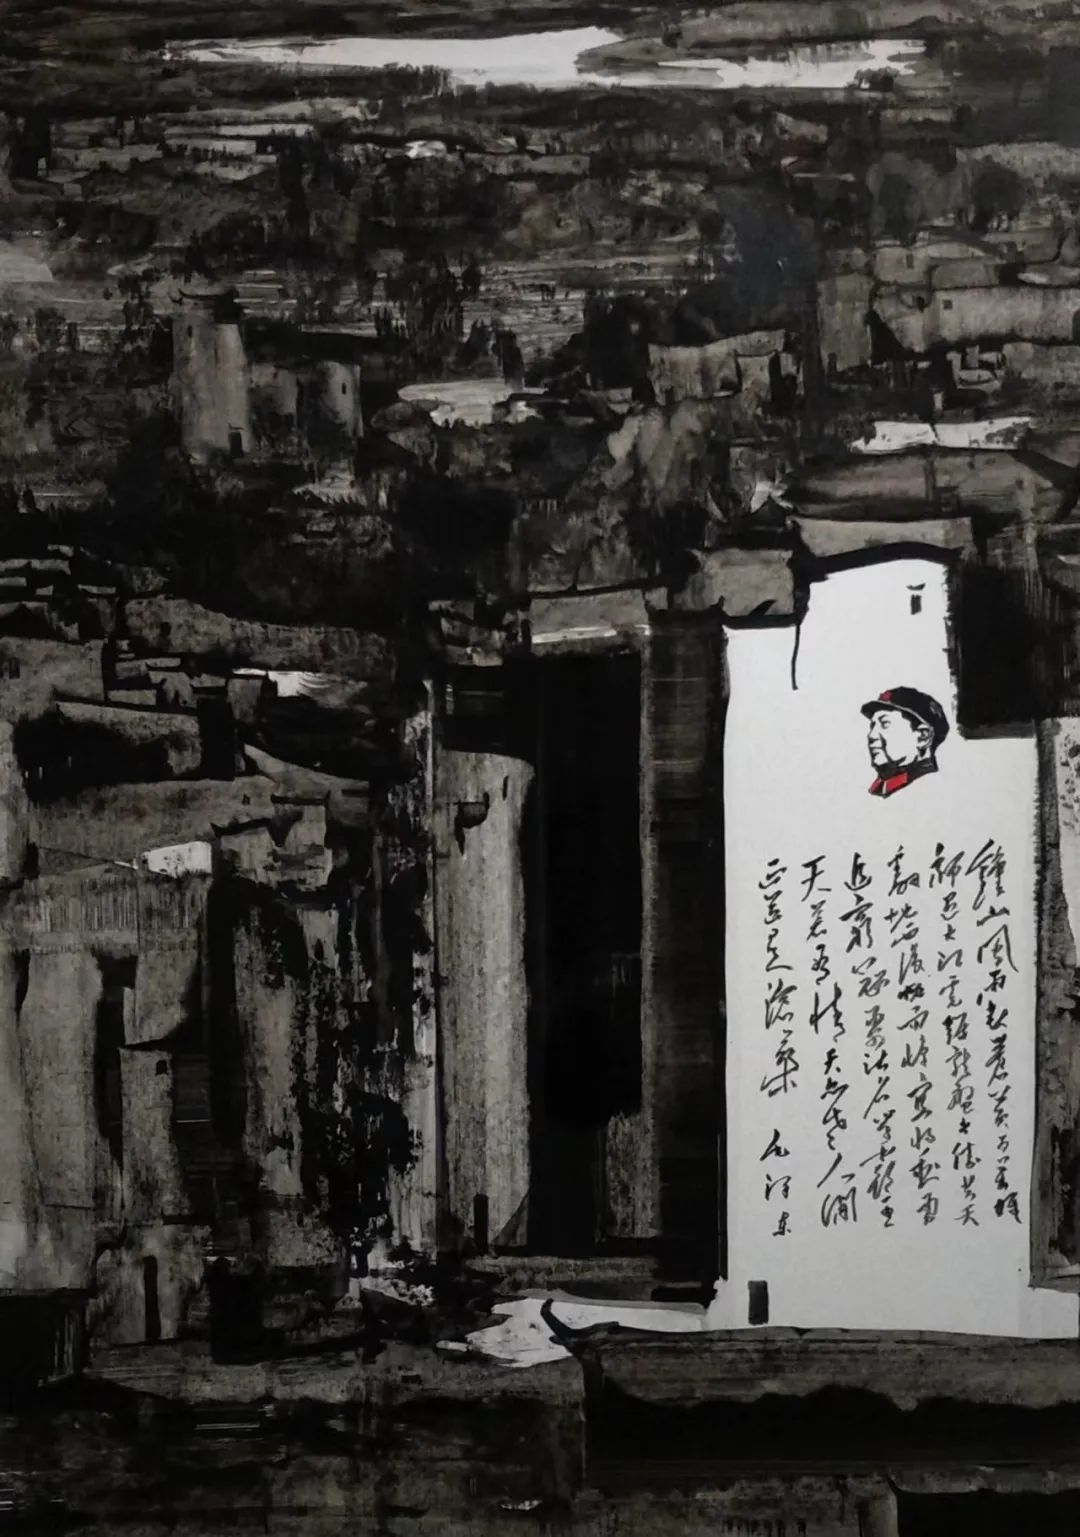 鐘山風雨起蒼黃百萬雄
師過大江虎踞龍盤今勝昔天
翻地覆慨而慷宜將剩勇
追窮寇不可沽名學霸王
天若有情天亦老人間
正道是滄桑 毛澤東